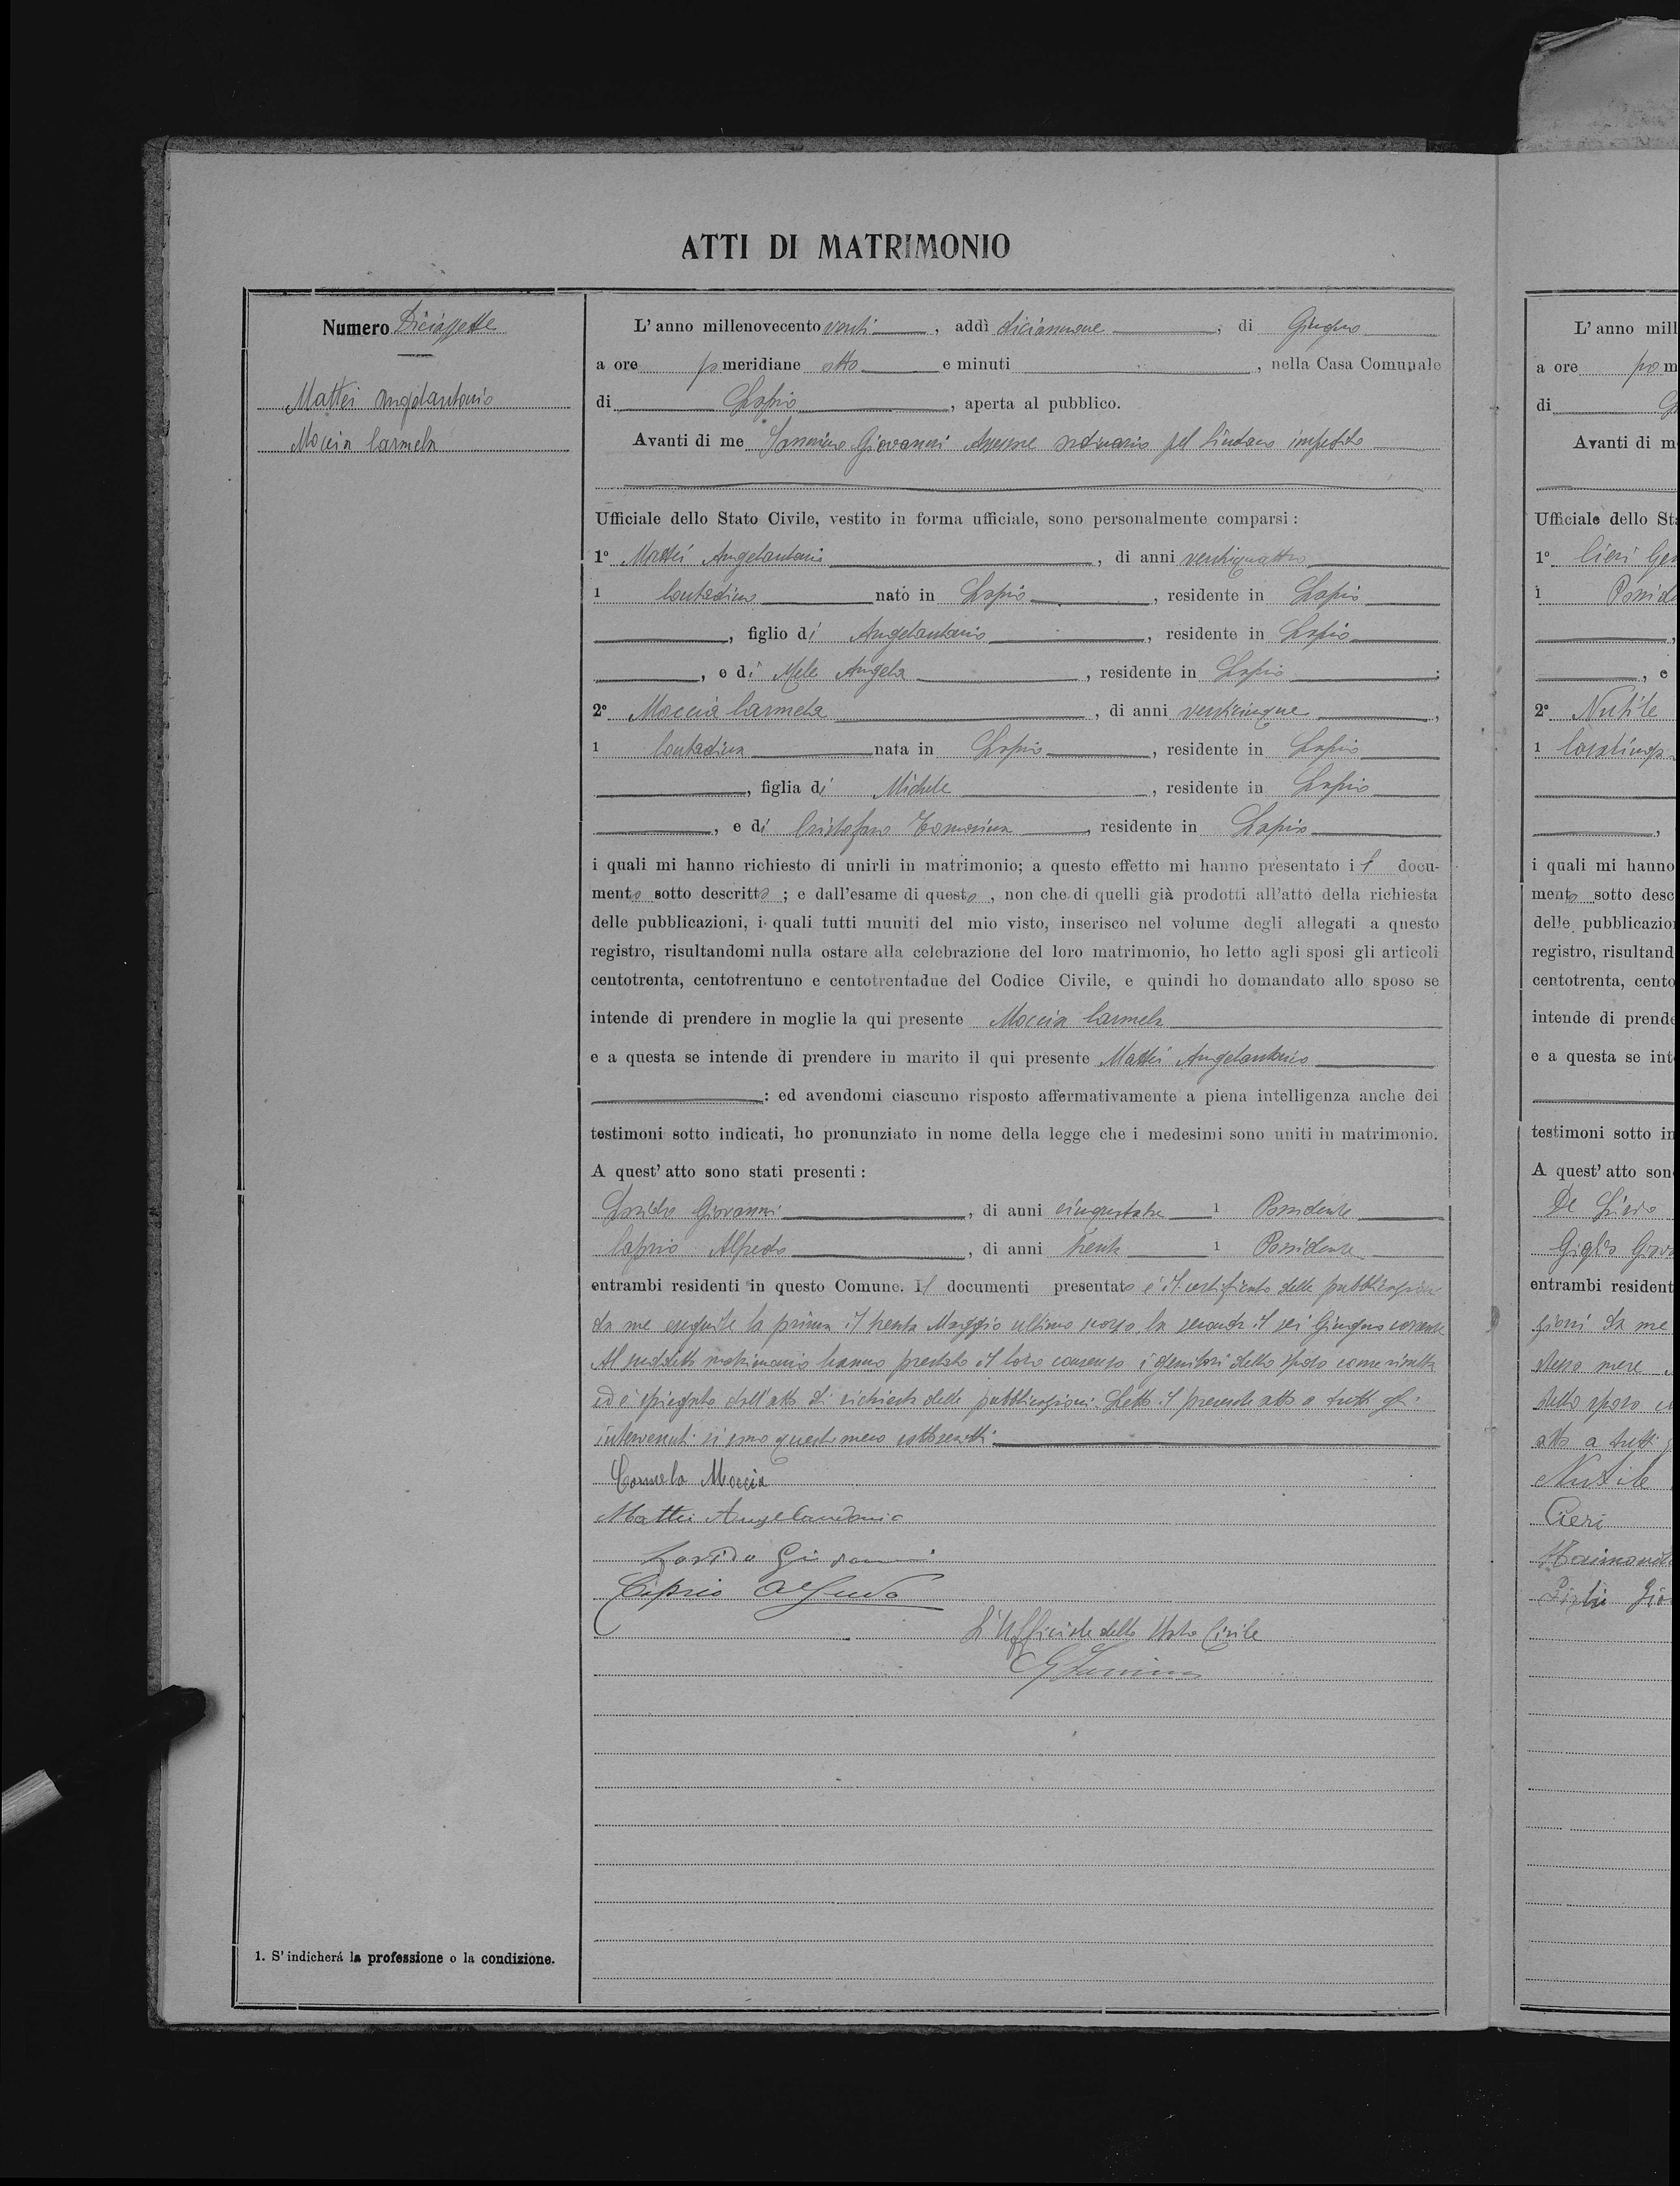 ATTI DI MATRIMONIO
Numero Diciassette
Mattei Angelantonio
Moccia Carmela
L'anno millenovecento venti, addì diciannove, di Giugno
a ore pomeridiane otto e minuti, nella Casa Comunale
di Lapio, aperta al pubblico.
Avanti di me Iannino Giovanni Assessore ordinario pel Sindaco impedito
Ufficiale dello Stato Civile, vestito in forma ufficiale, sono personalmente comparsi:
1° Mattei Angelantonio, di anni ventiquattro
1 Contadino nato in Lapio, residente in Lapio
, figlio di Angelantonio, residente in Lapio
, e di Mele Angela, residente in Lapio;
2° Moccia Carmela, di anni venticinque,
1 Contadina nata in Lapio, residente in Lapio
, figlia di Michele, residente in Lapio
, e di Cristofaro Tomasina, residente in Lapio
i quali mi hanno richiesto di unirli in matrimonio; a questo effetto mi hanno presentato il docu-
mento sotto descritto; e dall'esame di questo, non che di quelli già prodotti all'atto della richiesta
delle pubblicazioni, i quali tutti muniti del mio visto, inserisco nel volume degli allegati a questo
registro, risultandomi nulla ostare alla celebrazione del loro matrimonio, ho letto agli sposi gli articoli
centotrenta, centotrentuno e centotrentadue del Codice Civile, e quindi ho domandato allo sposo se
intende di prendere in moglie la qui presente Moccia Carmela
e a questa se intende di prendere in marito il qui presente Mattei Angelantonio
: ed avendomi ciascuno risposto affermativamente a piena intelligenza anche dei
testimoni sotto indicati, ho pronunziato in nome della legge che i medesimi sono uniti in matrimonio.
A quest'atto sono stati presenti:
Giovanni, di anni cinquntatre 1 Possidente
Caprio Alfredo, di anni trenta 1 Possidente
entrambi residenti in questo Comune. Il documenti presentato è il certificato delle pubblicazioni
da me eseguite la prima il trenta Maggio ultimo scorso, la seconda il sei Giugno corrente
Al suddetto matrimonio hanno prestato il loro consenso i genitori dello sposo come risulta
ed è spiegato dall'atto di richiesta delle pubblicazioni. Letto il presente atto a tutti gl'
intervenuti si sono questi meco sottoscritti.
Carmela Moccia
Mattei Angelantonio
Giovanni
Caprio Alfredo
L'Ufficiale dello Stato Civile
G Iannino
1. S'indicherá la professione o la condizione.
L'anno mill
a ore pom
di
Avanti di m
Ufficiale dello Sta
1° Cieri Gen
1 Posside
,
, e
2° Nutile
1
,
i quali mi hanno
mento sotto desc
delle pubblicazion
registro, risultand
centotrenta, cento
intende di prende
e a questa se int
testimoni sotto in
A quest'atto son
De
Giglio Giov
entrambi resident
zioni da me
stesso mese
dello sposo
atto a tutti
Nutile
Cieri
Giglio Gio